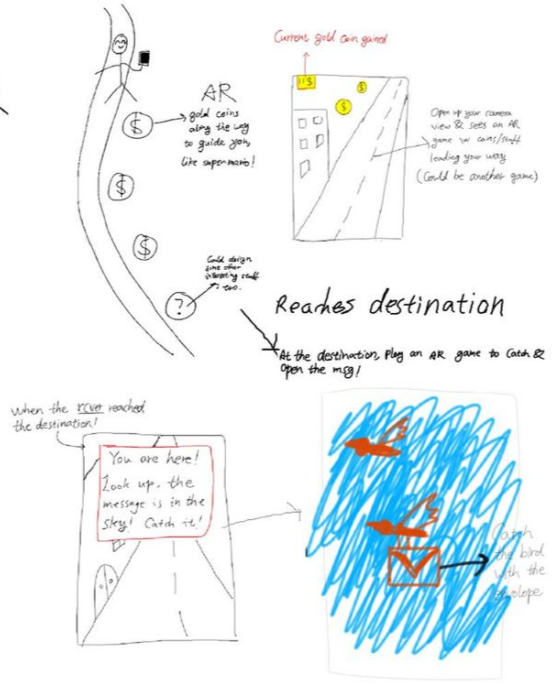 Current gold coin gained
11$
$
$
AR
gold coins
along the way
to guide you,
like supermario!
$
$
$
?
Could design
some other
interesting stuff
too.
Open up your camera
view & sets an AR
game w coins/stuff
leading your way
(Could be another game)
Reaches destination
At the destination, Play an AR game to Catch &
Open the msg!
When the rcver reached
the destination!
You are here!
Look up, the
message is in the
sky! Catch it!
Catch
the bird
with the
envolope